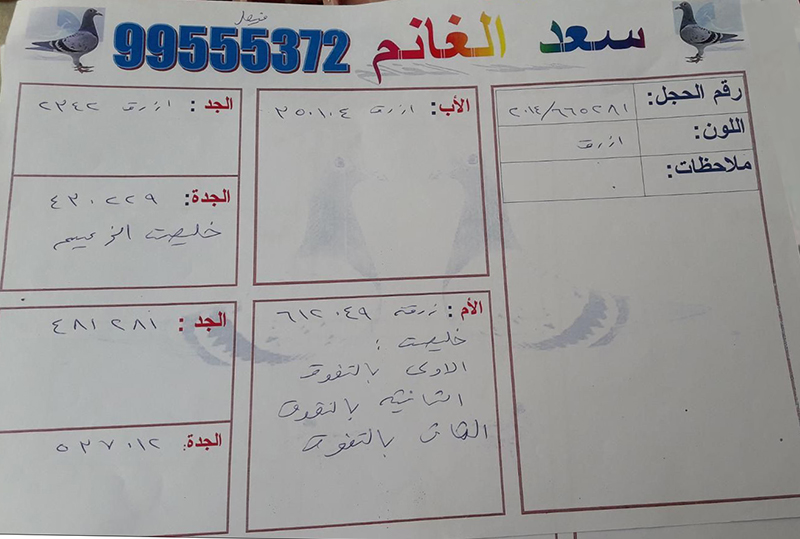 فيصل
سعد الغانم 99555372
رقم الحجل: ٢٠١٤/٦٦٥٢٨١
اللون: ازرق
ملاحظات: .
الأب: ازرق ٣٥٠١٠٤
الجد: ازرق ٢٣٤٢
الجدة: ٤٣٠٢٢٩
خليصت الزعيم
الأم: زرقه ٦١٢٠٤٩
خليصت:
الاولى بالتفوق
الثانيه بالتفوق
بالتفوق
الجد: ٤٨١٢٨١
الجدة: ٥٣٧٠١٢